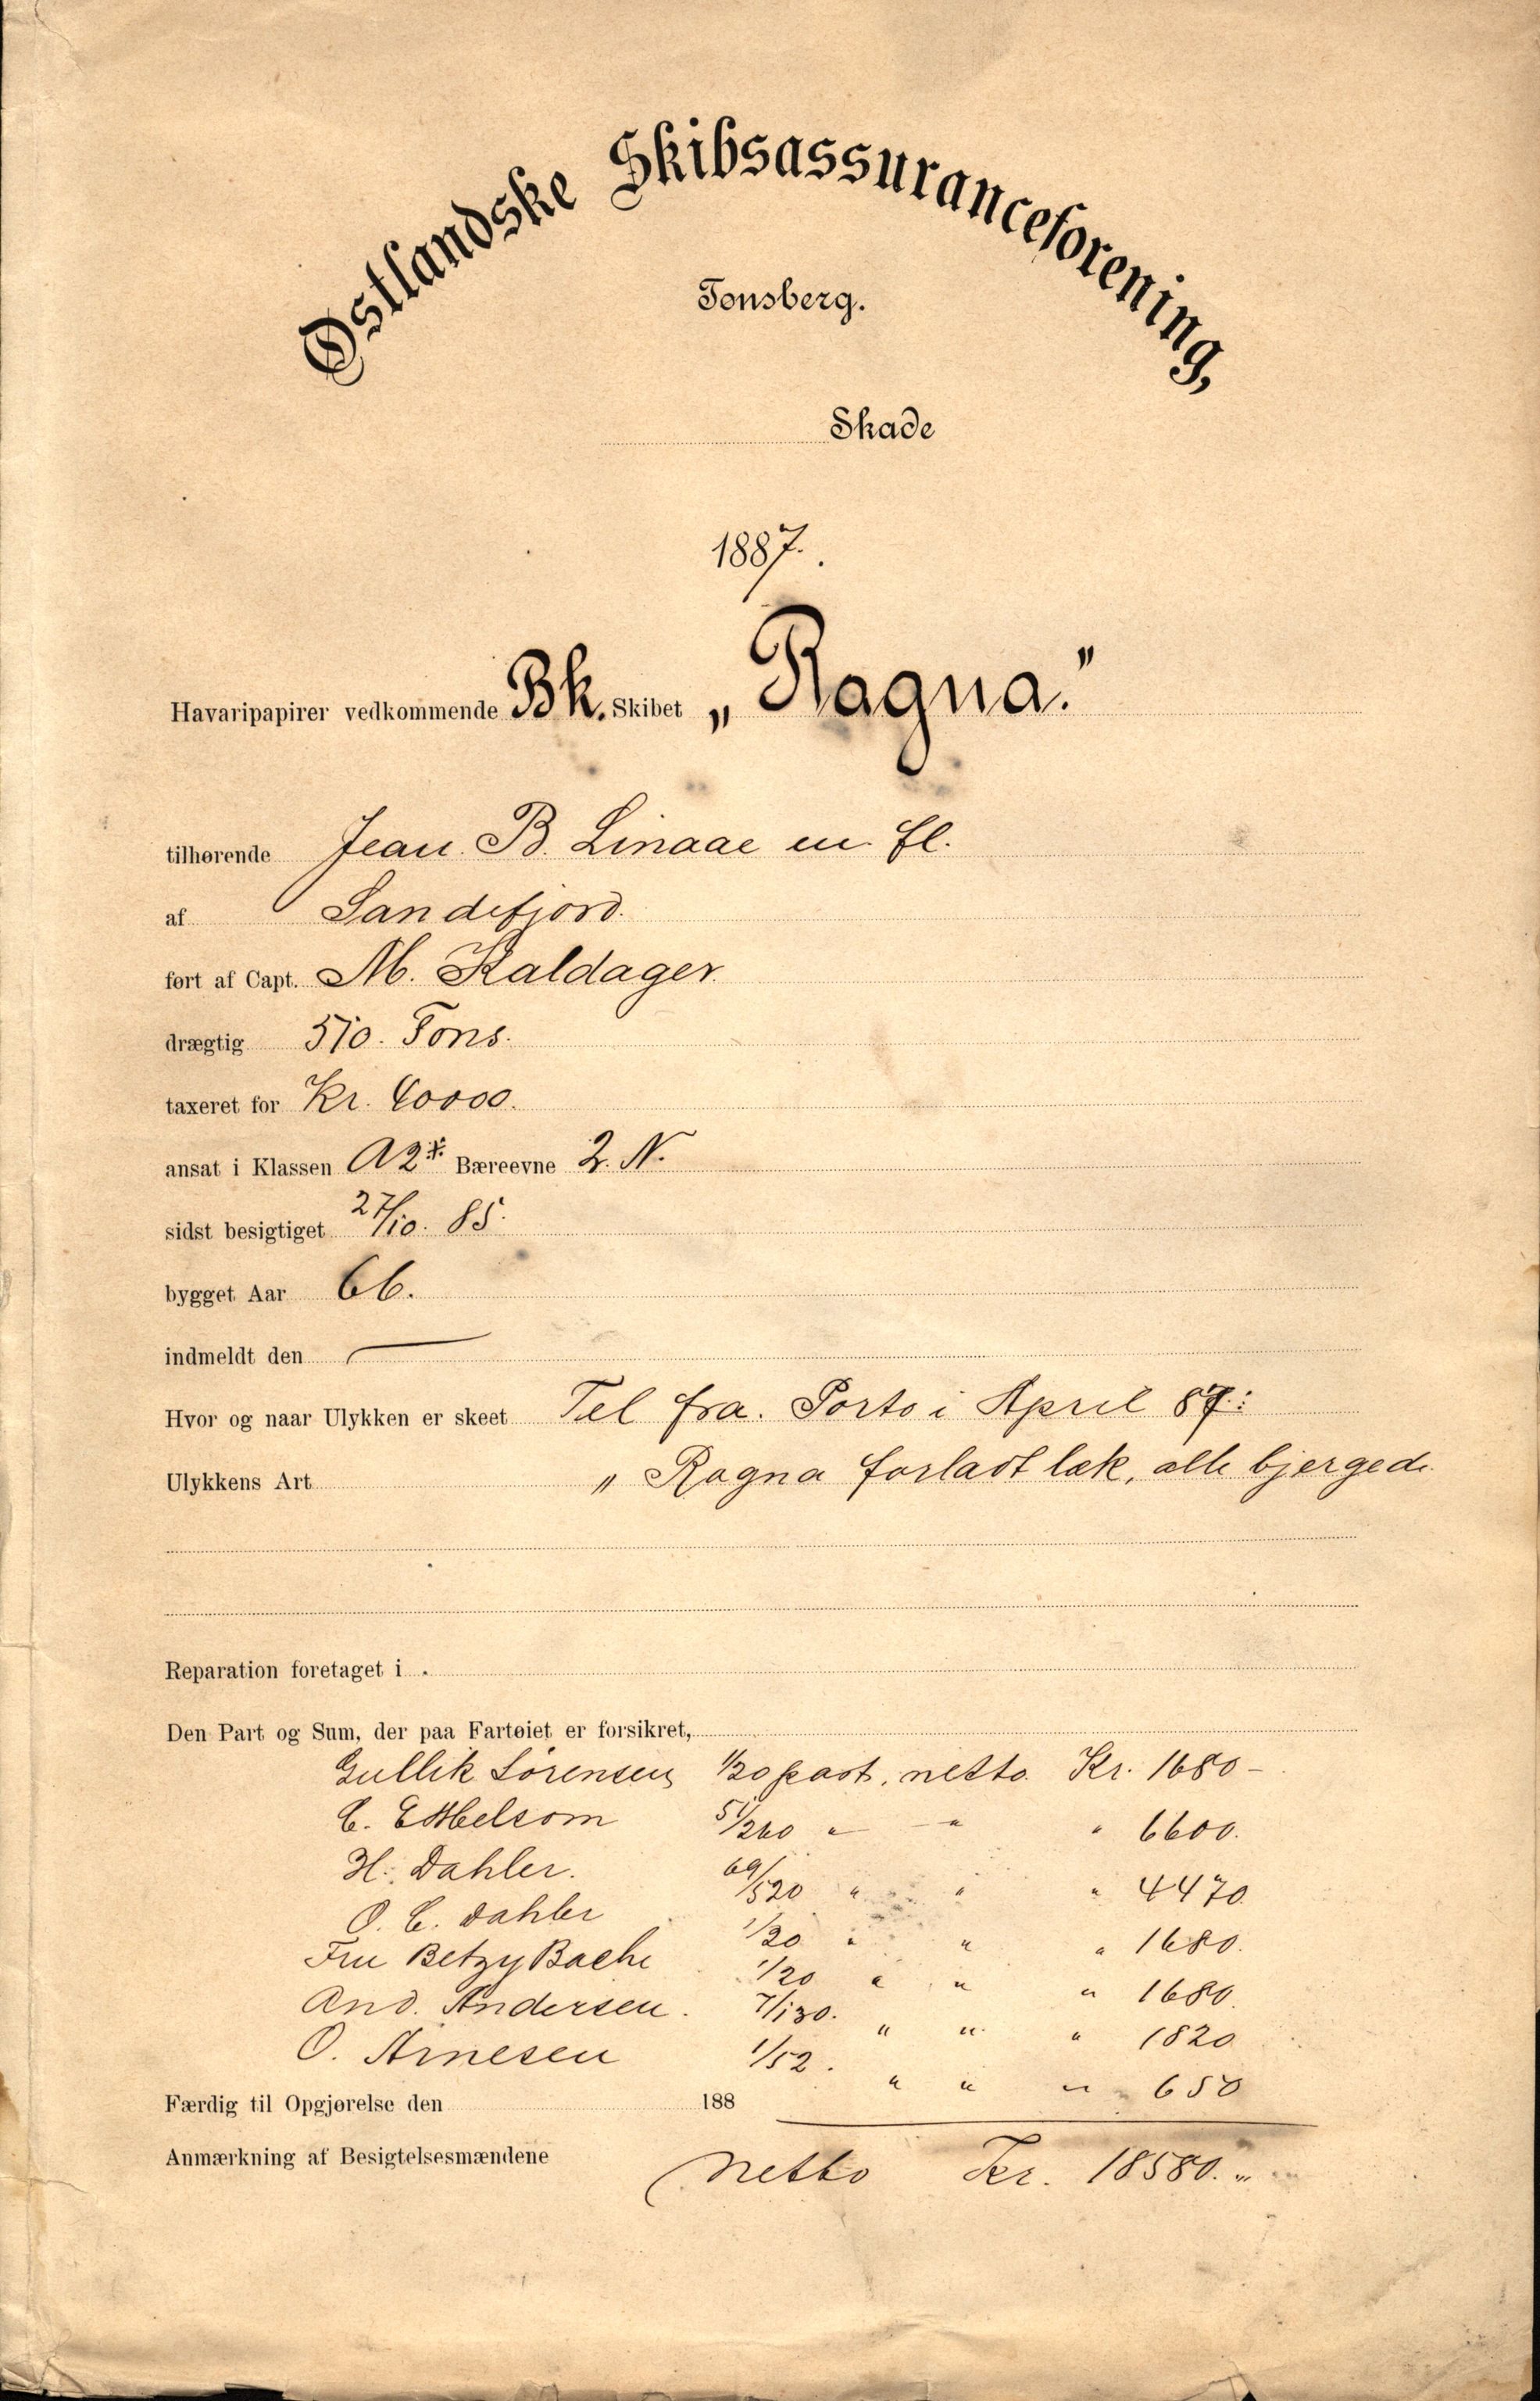 Østlandske Skibsassuranceforening,
Tønsberg.
Skade
1887.
Havaripapirer vedkommende Bk. Skibet „Ragna."
tilhørende Jean B. Linaae en. fl.
af Sandefjord.
ført af Capt. M. Kaldager.
drægtig 510. Tons.
taxeret for Kr. 40000.
ansat i Klassen A2 Bæreevne 2. N.
sidst besigtiget 27/10. 85.
bygget Aar 66.
indmeldt den
Hvor og naar Ulykken er skeet Tel fra. Porto i April 87:
Ulykkens Art „ Ragna forladt læk, alle bjergede.
Reparation foretaget i
Den Part og Sum, der paa Fartøiet er forsikret,
Gullik Sørensen 1/20 part. netto. Kr. 1680 -
C. Melsom 51/260 " " " 6600.
H. Dahler. 69/520 " " " 4470
O. C. Dahler 1/20 " " " 1680.
Fru Betzy Bache 1/20 " " " 1680.
And. Andersen. 7/130. " " " 1820
O. Arnesen 1/52. " " " 650
Færdig til Opgjørelse den 188
Anmærkning af Besigtelsesmændene
Netto Kr. 18580. "